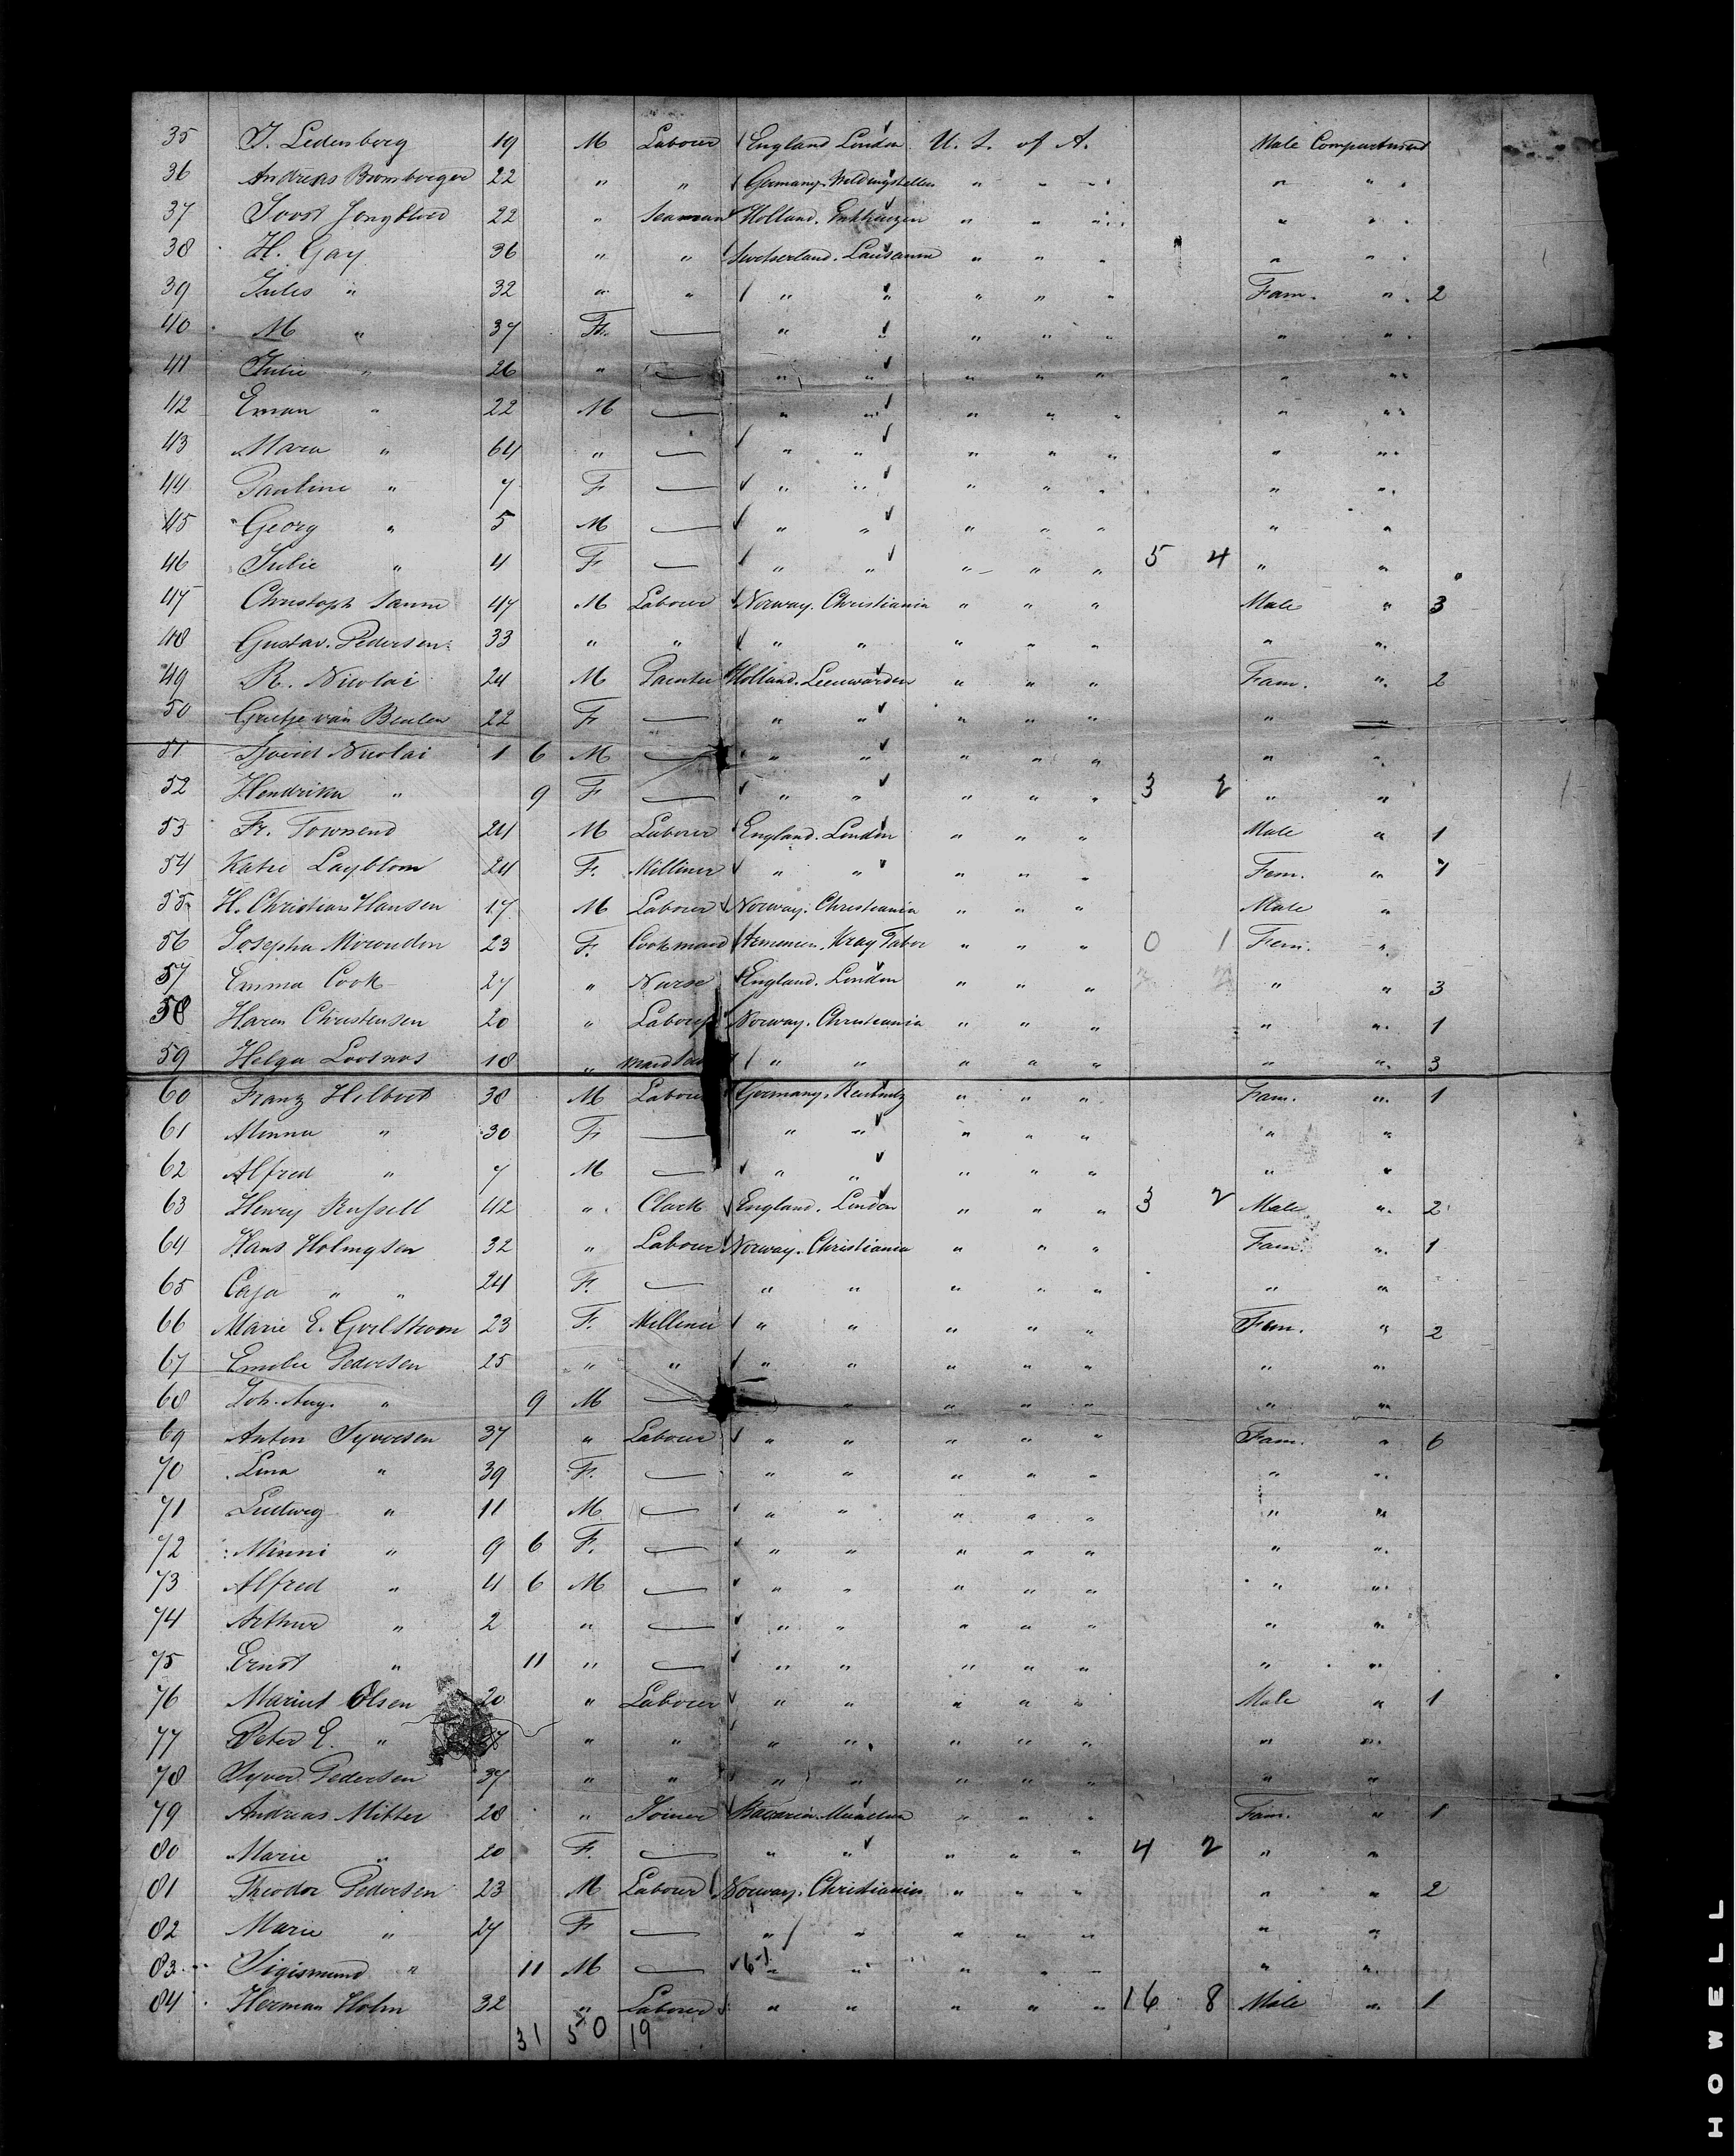 35 J. Ledenberg 19 M Labourer England London U. S. of A. Male Compartment
36 Andreas 22 " " Germany. " " " " "
37 Joost Jongbloed 22 " Seaman Holland. Enkhuizen " " " " "
38 H. Gay 36 " " Switserland. Lausanne " " " " "
39 Jules " 32 " " " " " " " Fam. " 2
40 M " 37 F. — " " " " " " "
41 Julie " 26 " — " " " " " " "
42 Eman " 22 M — " " " " " " "
43 " 64 " — " " " " " " "
44 Pauline " 7 F — " " " " " " "
45 Georg " 5 M — " " " " " " "
46 Julie " 4 F — " " " " " 5 4 " "
47 Christoph 47 M Labourer Norway. Christiania " " " Male " 3
48 Gustav. Pedersen 33 " " " " " " " " "
49 R. Nicolai 24 M Painter Holland. Leeuwarden " " " Fam. " 2
50 Grietje van 22 F — " " " " " " "
51 David Nicolai 1 6 M — " " " " " " "
52 Hendrika " 9 F — " " " " " 3 2 " "
53 Fr. Townsend 24 M Labourer England. London " " " Male " 1
54 Katie Laybloom 24 F. Milliner " " " " " Fem. " 1
55 H. Christian Hansen 17 M Labourer Norway. Christiania " " " Male "
56 Josepha 23 F. Cookmaid " " " 0 1 Fem. "
57 Emma Cook 27 " Nurse England. London " " " " " 3
58 Haren Christensen 20 " Norway. Christiania " " " " " 1
59 Helga 18 " " " " " " " " 3
60 Franz Hilbert 38 M Labour Germany. " " " Fam. " 1
61 Minna " 30 F — " " " " " " "
62 Alfred " 7 M — " " " " " " "
63 Henry Russell 42 " Clark England. London " " " 3 2 Male " 2
64 Hans Holmgsen 32 " Labour Norway. Christiania " " " Fam. " 1
65 Caja " " 24 F. — " " " " " " "
66 Marie E. 23 F. Millener " " " " " Fem. " 2
67 Emelie Pedersen 25 " " " " " " " " "
68 Joh. Aug. " 9 M — " " " " " "
69 Anton Syversen 37 " Labourer " " " " " Fam. " 6
70 Lina " 39 F. — " " " " " " "
71 Ludwig " 11 M — " " " " " " "
72 Minni " 9 6 F. — " " " " " " "
73 Alfred " 4 6 M — " " " " " " "
74 Arthur " 2 " — " " " " " " "
75 Ernst " 11 " — " " " " " " "
76 Olsen 20 " Labourer " " " " " Male " 1
77 Peter E. " " " " " " " " " "
78 Syver Pedersen 37 " " " " " " " " "
79 Andreas 28 " Joiner Bavaria. " " " Fam. " 1
80 Marie " 20 F. — " " " " " 4 2 " "
81 Theodor Pedersen 23 M Labourer Norway. Christiania " " " " " 2
82 Marie " 27 F — " " " " " " "
83 Sigismund " 11 M — 61 " " " " " " "
84 Herman Holm 32 " Labourer " " " " " 16 8 Male " 1
31 50 19
HOWELL